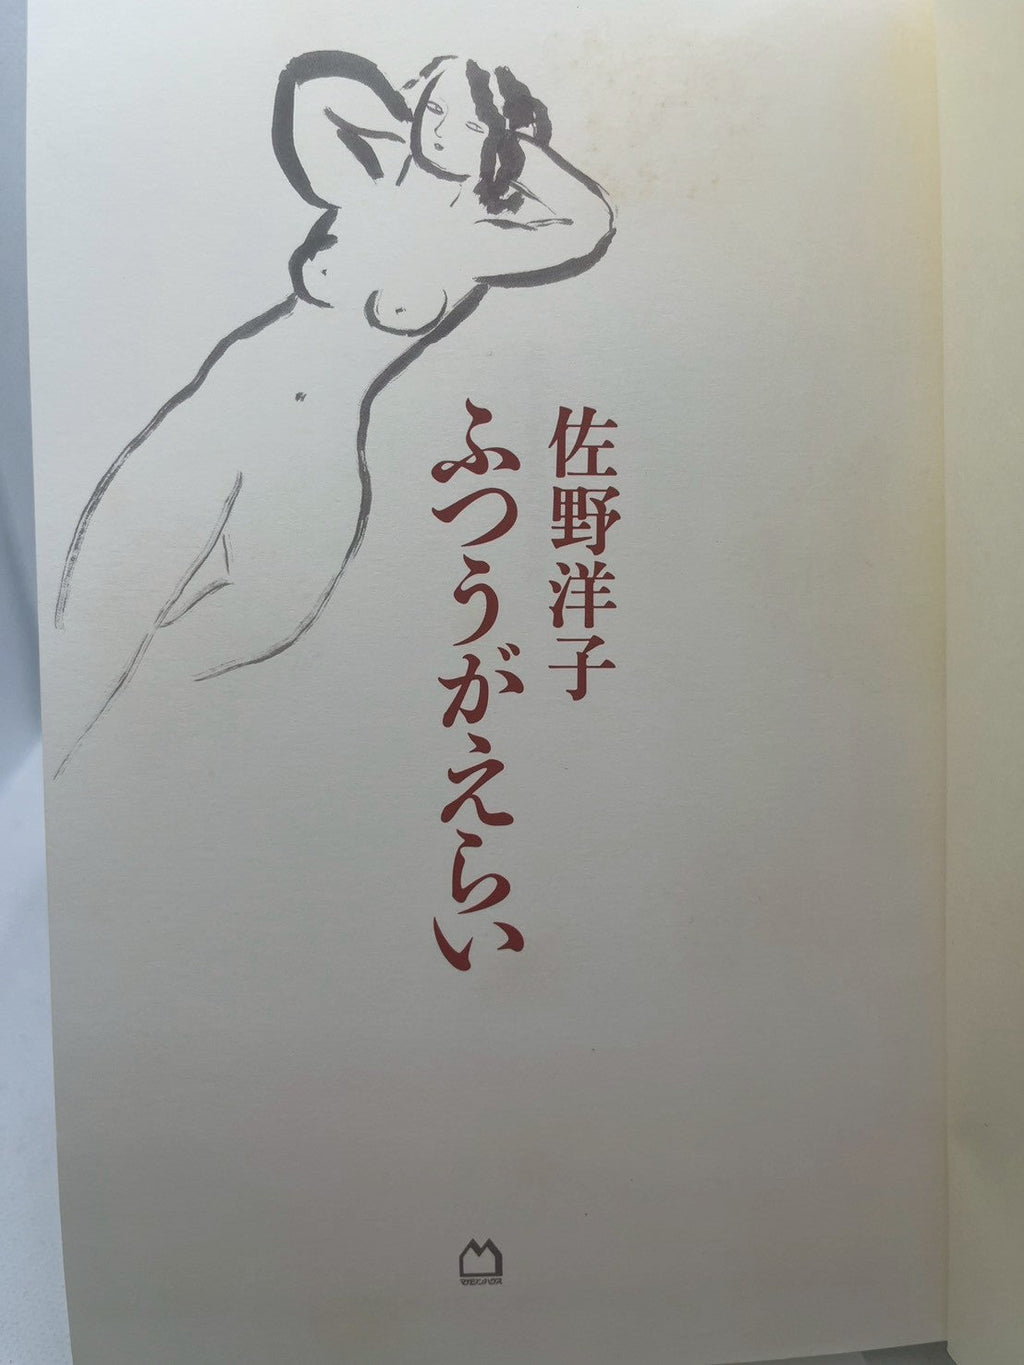 佐野洋子
ふつうがえらい
マガジンハウス